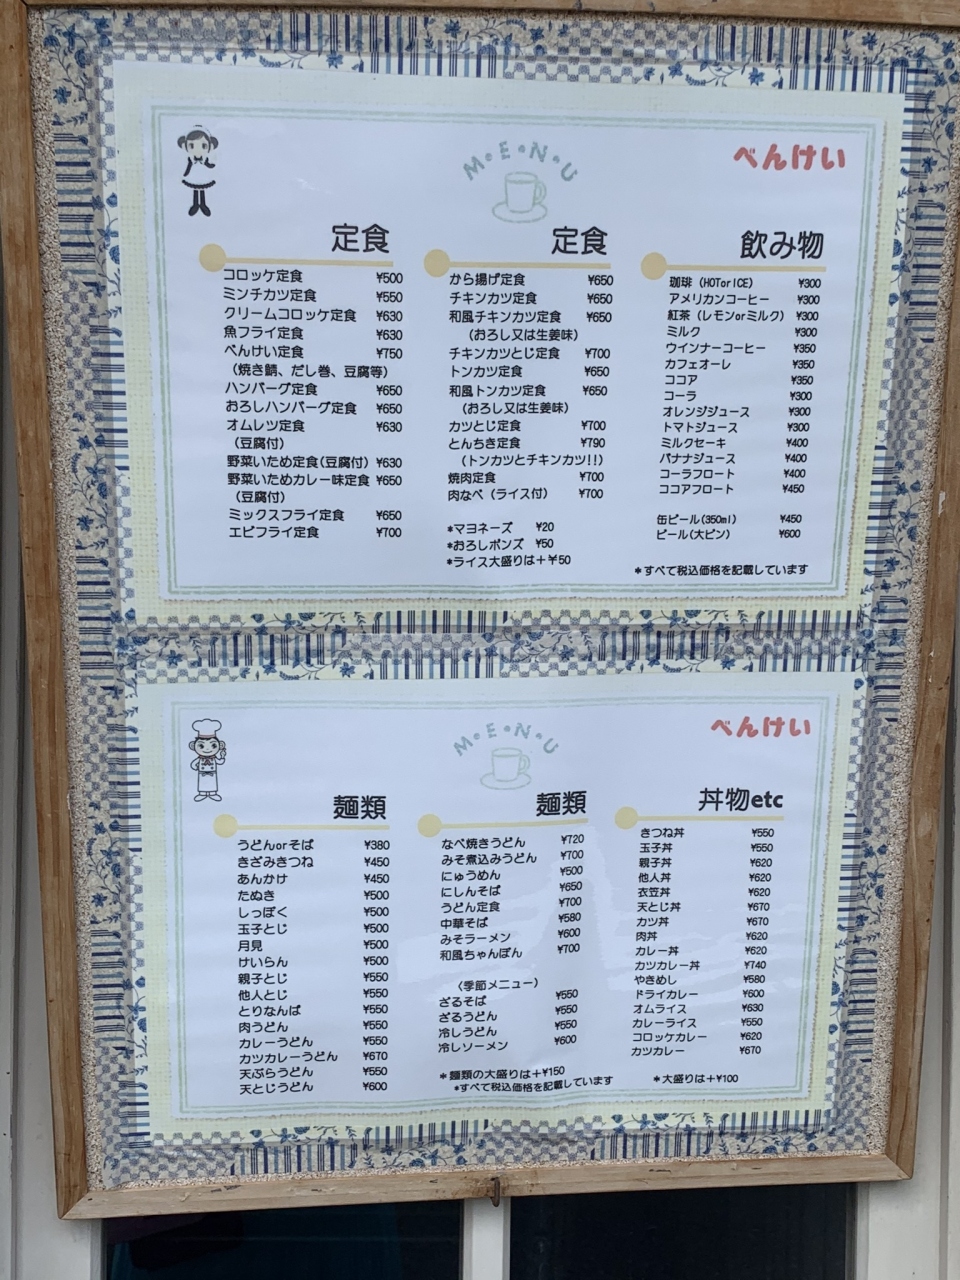 M・E・N・U
べんけい
定食
コロッケ定食 ¥500
ミンチカツ定食 ¥550
クリームコロッケ定食 ¥630
魚フライ定食 ¥630
べんけい定食 ¥750
(焼き鯖、だし巻、豆腐等)
ハンバーグ定食 ¥650
おろしハンバーグ定食 ¥650
オムレツ定食 ¥630
(豆腐付)
野菜いため定食(豆腐付) ¥630
野菜いためカレー味定食 ¥650
(豆腐付)
ミックスフライ定食 ¥650
エビフライ定食 ¥700
定食
から揚げ定食 ¥650
チキンカツ定食 ¥650
和風チキンカツ定食 ¥650
(おろし又は生姜味)
チキンカツとじ定食 ¥700
トンカツ定食 ¥650
和風トンカツ定食 ¥650
(おろし又は生姜味)
カツとじ定食 ¥700
とんちき定食 ¥790
(トンカツとチキンカツ!!)
焼肉定食 ¥700
肉なべ(ライス付) ¥700
*マヨネーズ ¥20
*おろしポンズ ¥50
*ライス大盛りは+¥50
飲み物
珈琲(HOTorICE) ¥300
アメリカンコーヒー ¥300
紅茶(レモンorミルク) ¥300
ミルク ¥300
ウインナーコーヒー ¥350
カフェオーレ ¥350
ココア ¥350
コーラ ¥300
オレンジジュース ¥300
トマトジュース ¥300
ミルクセーキ ¥400
バナナジュース ¥400
コーラフロート ¥400
ココアフロート ¥450
缶ビール(350ml) ¥450
ビール(大ビン) ¥600
*すべて税込価格を記載しています
M・E・N・U
べんけい
麺類
うどんorそば ¥380
きざみきつね ¥450
あんかけ ¥450
たぬき ¥500
しっぽく ¥500
玉子とじ ¥500
月見 ¥500
けいらん ¥500
親子とじ ¥550
他人とじ ¥550
とりなんば ¥550
肉うどん ¥550
カレーうどん ¥550
カツカレーうどん ¥670
天ぷらうどん ¥550
天とじうどん ¥600
麺類
なべ焼きうどん ¥720
みそ煮込みうどん ¥700
にゅうめん ¥500
にしんそば ¥650
うどん定食 ¥700
中華そば ¥580
みそラーメン ¥600
和風ちゃんぽん ¥700
〈季節メニュー〉
ざるそば ¥550
ざるうどん ¥550
冷しうどん ¥550
冷しソーメン ¥600
*麺類の大盛りは+¥150
*すべて税込価格を記載しています
丼物etc
きつね丼 ¥550
玉子丼 ¥550
親子丼 ¥620
他人丼 ¥620
衣笠丼 ¥620
天とじ丼 ¥670
カツ丼 ¥670
肉丼 ¥620
カレー丼 ¥620
カツカレー丼 ¥740
やきめし ¥580
ドライカレー ¥600
オムライス ¥630
カレーライス ¥550
コロッケカレー ¥620
カツカレー ¥670
*大盛りは+¥100